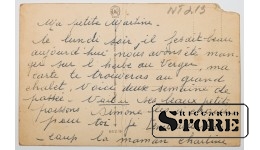 Nº 213
Ma petite Martine.
le lundi soir, il fesait beau
aujourd'hui nous avons été man-
ger sur l'herbe au Verger, ma
carte te trouveras au grand
chalet, Voici deux semaine de
passée. beaux petit
poissons Simone
pour toi. Je
coup la maman chartine
RICCARDO
STORE